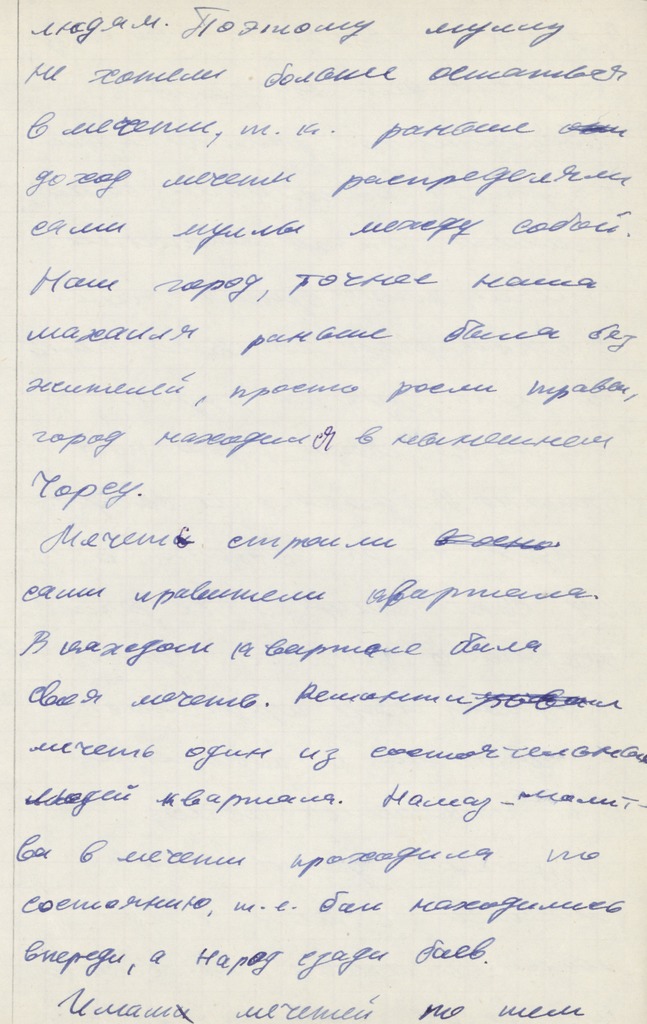 людям. Поэтому муллы
не хотели больше оставаться
в мечети, т. к. раньше они
доход мечети распределяли
сами муллы между собой.
Наш город, точнее наша
махалля раньше была без
жителей, просто росли травы,
город находился в нынешнем
Чорсу.
Мечеть строили
сами правители квартала.
В каждом квартале была
своя мечеть. Ремонтировал
мечеть один из состоятельных
людей квартала. Намаз - молит-
ва в мечети проходила по
состоянию, т. е. баи находились
впереди, а народ сзади баев.
Имамы мечетей по тем